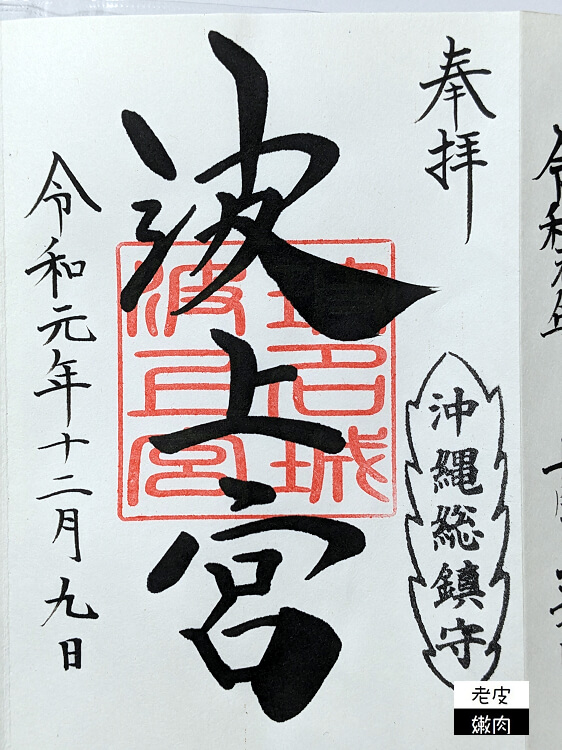 奉拝
沖縄総鎮守
波上宮
令和元年十二月九日
令和元年
老皮
嫩肉